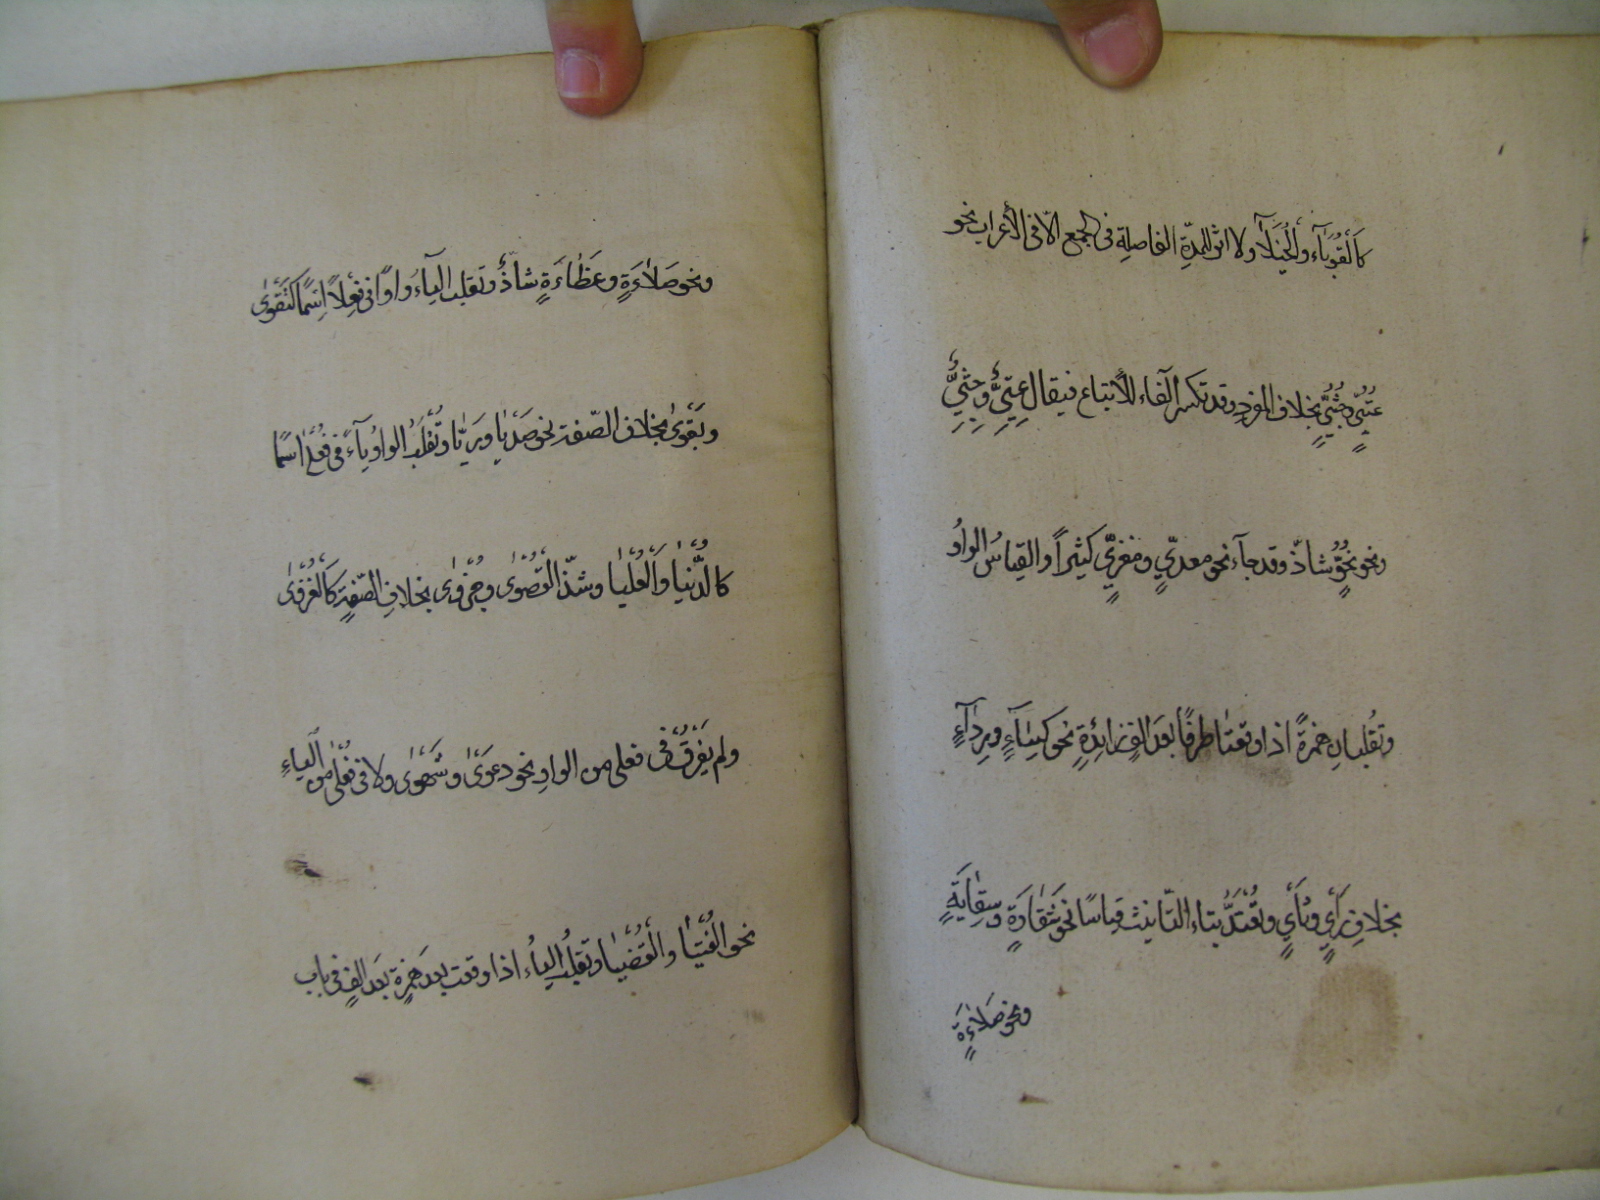 كَالْقُوَبَآء والخُيَلَآ ولا اثر للمدّةِ الفاصلةِ فى الجمع الّا فى الأعراب نحو
عُتُىٍّ وجُثُىٍّ بخلاف المفرد وقد تكسر الفآء للأتباع فيقال عِتِىٌّ وجِثِىٌّ
ونحو نُحُوٍّ شاذّ وقد جآء نحو معدىٍّ ومغزىٍّ كثيراً والقياسُ الواوُ
وتُقْلبانِ همزةً اذا وقعتا طرفًا بعد الفٍ زائدةٍ نحو كِسَآءٍ ورِدَآءٍ
بخلافِ رَأىٍ وثَأىٍ وتُعْتَدُّ بتاء التّانيث قياسًا نحو شَقَاوَةٍ وسِقَايَةٍ
ونحو صَلَاءَةٍ
ونحو صَلَاءَةٍ وعَظَاءَةٍ شاذٌّ وتقلب اليآءُ واوًا فى فَعْلَى اِسْمًا كَتَقْوٰى
وبَقْوٰى بخلاف الصّفة نحو صَدْيَا ورَيَّا وتُقْلَبُ الواوُ يآءً فى فُعْلَى اسمًا
كالدُّنْيَا والْعُلْيَا وشذّ القُصْوٰى وحُزْوٰى بخلافِ الصّفةِ كَالْغُزْوٰى
ولم يُفْرَقْ فى فعلى من الواوِ نحو دعوٰى وشَهْوٰى ولا فى فُعْلٰى من الْياءِ
نحو الفُتْيَا والْقُضْيَا وتقلبُ الياءُ اذا وقعت بعد همزةٍ بعد الفٍ فى باب